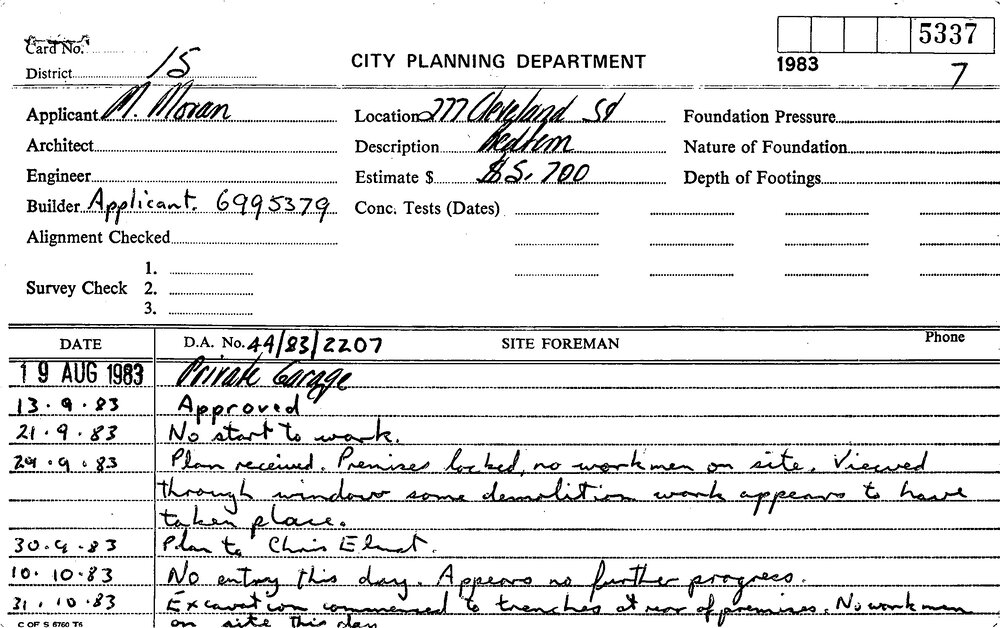 Card No.
5337
District 15
CITY PLANNING DEPARTMENT
1983
7
Applicant M. Moran
Location 277 Cleveland St
Foundation Pressure
Architect
Description Redfern
Nature of Foundation
Engineer
Estimate $ $5,700
Depth of Footings
Builder Applicant. 6995379
Conc. Tests (Dates)
Alignment Checked
1.
Survey Check 2.
3.
DATE
D.A. No. 44/83/2207
SITE FOREMAN
Phone
19 AUG 1983 Private Garage
13.9.83 Approved
21.9.83 No start to work.
29.9.83 Plan received. Premises locked, no workmen on site. Viewed
through window some demolition work appears to have
taken place.
30.9.83 Plan to Chris
10.10.83 No entry this day. Appears no further progress.
31.10.83 Excavation commenced to trenches at rear of premises. No workmen
on site this day
C OF S 6760 T6